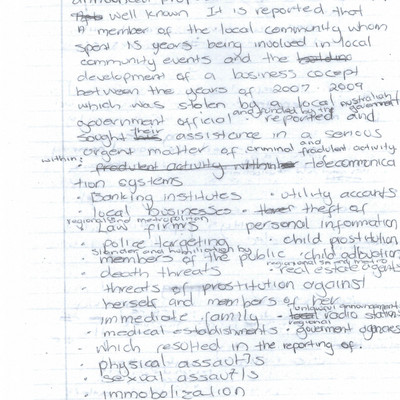 well known It is reported that
A member of the local community whom
spent 15 years being involved in local
community events and the
development of a business cocept
between the years of 2007 - 2009
which was stolen by a local australian/
and funded by the government
government official reported and
sought their assistance in a serious
and
urgent matter of criminal fradulent activity
within:
• fradulent activity within telecommunica
tion systems
• Banking institutes • utility accounts
• local businesses • theft of
regional and metropolitan
• Law firms personal information
• police targeting • child prostitution
slander and humiliation by
members of the public • child adbuction
• death threats • real estate agents
• threats of prostitution against
herself and members of her
immediate family • radio stations
announcements
regional
• medical establishments • goverment agencies
• which resulted in the reporting of.
• physical assaults
• sexual assaults
• immobolization